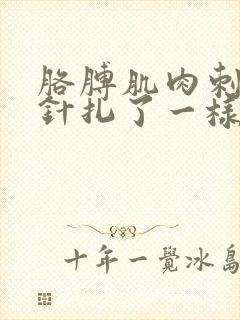 胳膊肌肉刺
針扎了一樣
十年一覺冰島